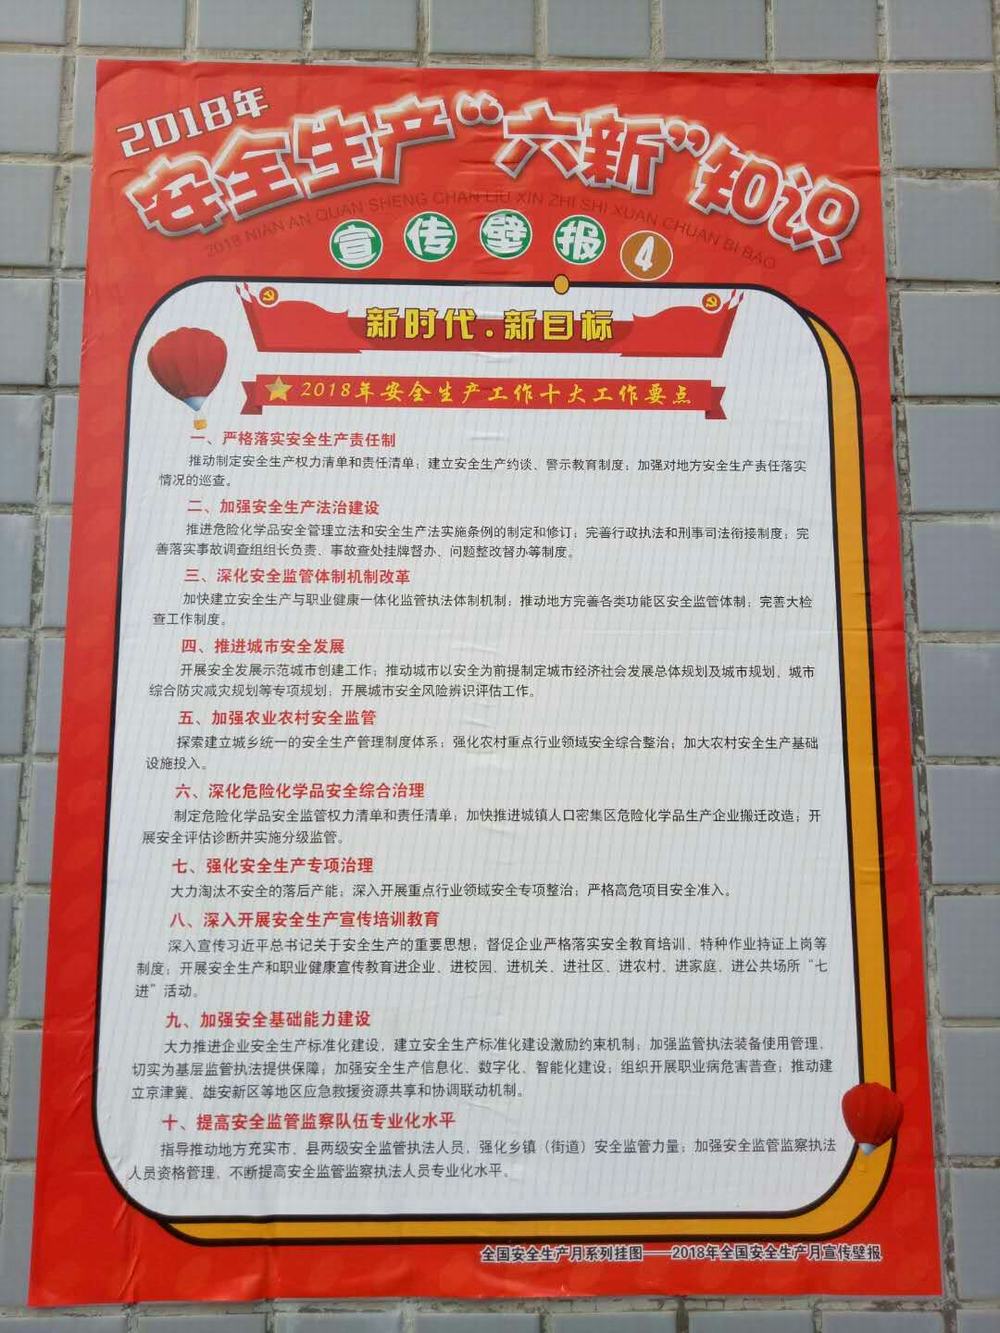 2018年
安全生产“六新”知识
2018 NIAN AN QUAN SHENG CHAN LIU XIN ZHI SHI XUAN CHUAN BI BAO
宣传壁报4
新时代.新目标
2018年安全生产工作十大工作要点
一、严格落实安全生产责任制
推动制定安全生产权力清单和责任清单；建立安全生产约谈、警示教育制度；加强对地方安全生产责任落实
情况的巡查。
二、加强安全生产法治建设
推进危险化学品安全管理立法和安全生产法实施条例的制定和修订；完善行政执法和刑事司法衔接制度；完
善落实事故调查组组长负责、事故查处挂牌督办、问题整改督办等制度。
三、深化安全监管体制机制改革
加快建立安全生产与职业健康一体化监管执法体制机制；推动地方完善各类功能区安全监管体制；完善大检
查工作制度。
四、推进城市安全发展
开展安全发展示范城市创建工作；推动城市以安全为前提制定城市经济社会发展总体规划及城市规划、城市
综合防灾减灾规划等专项规划；开展城市安全风险辨识评估工作。
五、加强农业农村安全监管
探索建立城乡统一的安全生产管理制度体系；强化农村重点行业领域安全综合整治；加大农村安全生产基础
设施投入。
六、深化危险化学品安全综合治理
制定危险化学品安全监管权力清单和责任清单；加快推进城镇人口密集区危险化学品生产企业搬迁改造；开
展安全评估诊断并实施分级监管。
七、强化安全生产专项治理
大力淘汰不安全的落后产能；深入开展重点行业领域安全专项整治；严格高危项目安全准入。
八、深入开展安全生产宣传培训教育
深入宣传习近平总书记关于安全生产的重要思想；督促企业严格落实安全教育培训、特种作业持证上岗等
制度；开展安全生产和职业健康宣传教育进企业、进校园、进机关、进社区、进农村、进家庭、进公共场所“七
进”活动。
九、加强安全基础能力建设
大力推进企业安全生产标准化建设，建立安全生产标准化建设激励约束机制；加强监管执法装备使用管理，
切实为基层监管执法提供保障；加强安全生产信息化、数字化、智能化建设；组织开展职业病危害普查；推动建
立京津冀、雄安新区等地区应急救援资源共享和协调联动机制。
十、提高安全监管监察队伍专业化水平
指导推动地方充实市、县两级安全监管执法人员，强化乡镇（街道）安全监管力量；加强安全监管监察执法
人员资格管理，不断提高安全监管监察执法人员专业化水平。
全国安全生产月系列挂图——2018年全国安全生产月宣传壁报